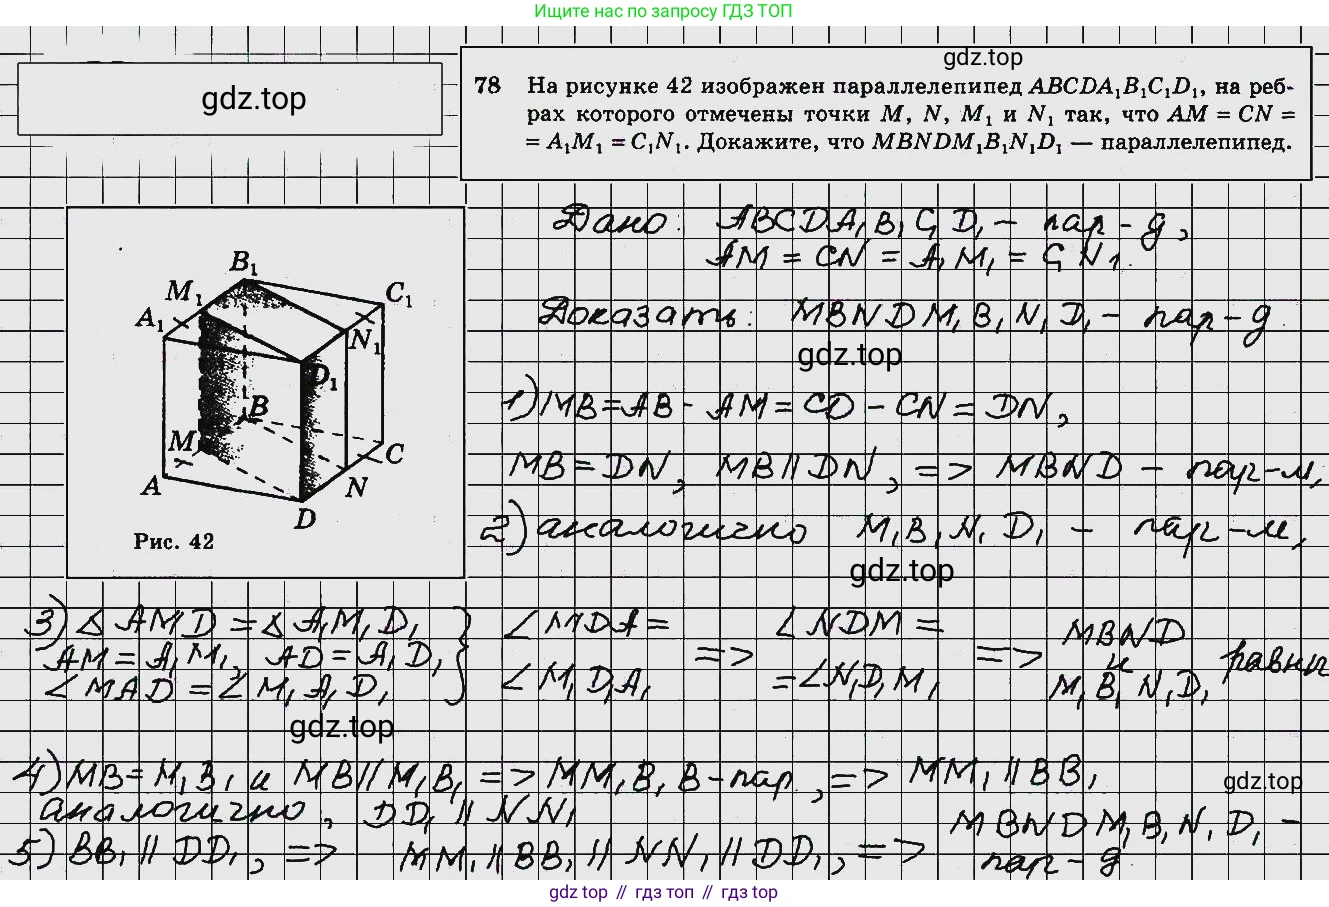 Ищите нас по запросу ГДЗ ТОП
gdz.top
gdz.top
78 На рисунке 42 изображен параллелепипед ABCDA₁B₁C₁D₁, на реб-
рах которого отмечены точки M, N, M₁ и N₁ так, что AM = CN =
= A₁M₁ = C₁N₁. Докажите, что MBNDM₁B₁N₁D₁ — параллелепипед.
Дано: ABCDA₁B₁C₁D₁ - пар-д,
AM = CN = A₁M₁ = C₁N₁.
Доказать: MBNDM₁B₁N₁D₁ - пар-д
gdz.top
B₁
M₁
C₁
A₁
N₁
D₁
B
M
C
A
N
D
Рис. 42
1) MB = AB - AM = CD - CN = DN,
MB = DN, MB || DN, => MBND - пар-м,
2) аналогично M₁B₁N₁D₁ - пар-м,
gdz.top
3) △ AMD = △ A₁M₁D₁
AM = A₁M₁, AD = A₁D₁
∠ MAD = ∠ M₁A₁D₁
} ∠ MDA =
∠ M₁D₁A₁
=> ∠ NDM =
= ∠ N₁D₁M₁
=> MBND
и
M₁B₁N₁D₁ равны
gdz.top
4) MB = M₁B₁ и MB || M₁B₁ => MM₁B₁B - пар., => MM₁ || BB₁
gdz.top
аналогично, DD₁ || NN₁
5) BB₁ || DD₁, => MM₁ || BB₁ || NN₁ || DD₁, => MBNDM₁B₁N₁D₁ -
пар-д
gdz.top // гдз топ // гдз top